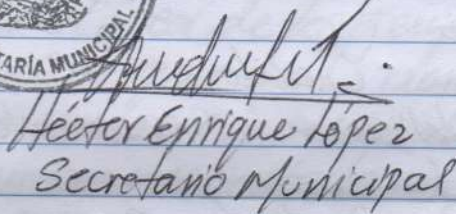 TARÍA MUNICIPAL
Héctor Enrique López
Secretario Municipal